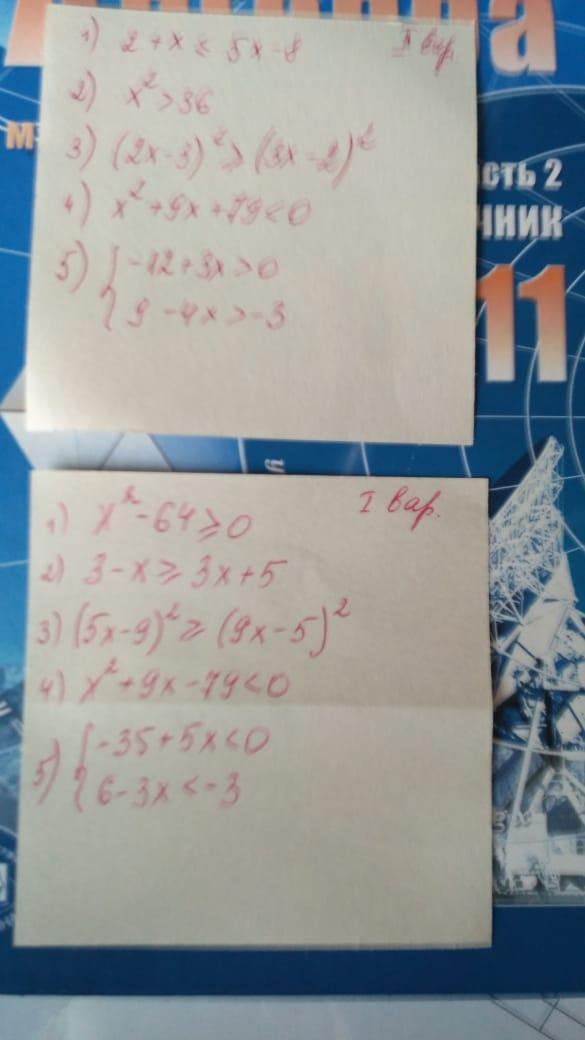 Алгебра
1) 2+x ≤ 5x-8
II вар.
2) x² > 36
3) (2x-3)² ≥ (3x-2)²
4) x² + 9x + 79 < 0
5) { -12+3x > 0
9 - 4x > -3
м
сть 2
чник
11
1) x² - 64 ≥ 0
I вар.
2) 3 - x ≥ 3x + 5
3) (5x-9)² ≥ (9x-5)²
4) x² + 9x - 79 < 0
5) { -35 + 5x < 0
6 - 3x < -3